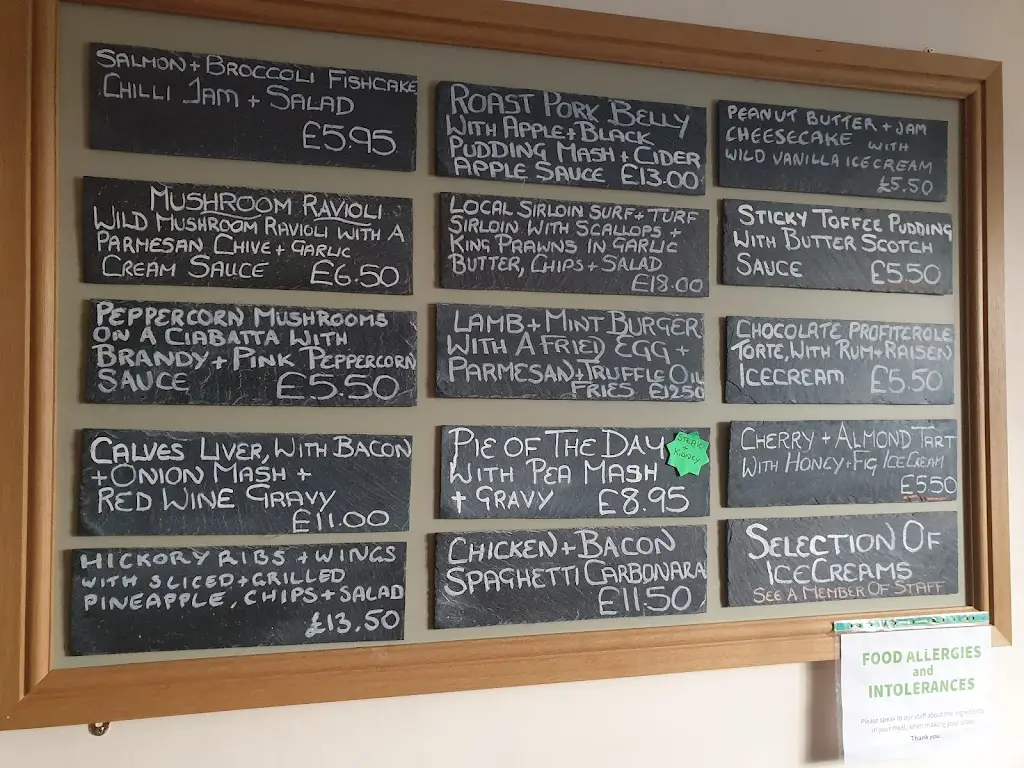 SALMON + BROCCOLI FISHCAKE
CHILLI JAM + SALAD
£5.95
MUSHROOM RAVIOLI
WILD MUSHROOM RAVIOLI WITH A
PARMESAN, CHIVE + GARLIC
CREAM SAUCE £6.50
PEPPERCORN MUSHROOMS
ON A CIABATTA WITH
BRANDY + PINK PEPPERCORN
SAUCE £5.50
CALVES LIVER, WITH BACON
+ ONION MASH +
RED WINE GRAVY
£11.00
HICKORY RIBS + WINGS
WITH SLICED + GRILLED
PINEAPPLE, CHIPS + SALAD
£13.50
ROAST PORK BELLY
WITH APPLE + BLACK
PUDDING MASH + CIDER
APPLE SAUCE £13.00
LOCAL SIRLOIN SURF + TURF
SIRLOIN WITH SCALLOPS +
KING PRAWNS IN GARLIC
BUTTER, CHIPS + SALAD
£18.00
LAMB + MINT BURGER
WITH A FRIED EGG +
PARMESAN + TRUFFLE OIL
FRIES £12.50
PIE OF THE DAY
WITH PEA MASH
+ GRAVY £8.95
STEAK
+
KIDNEY
CHICKEN + BACON
SPAGHETTI CARBONARA
£11.50
PEANUT BUTTER + JAM
CHEESECAKE WITH
WILD VANILLA ICECREAM
£5.50
STICKY TOFFEE PUDDING
WITH BUTTER SCOTCH
SAUCE £5.50
CHOCOLATE PROFITEROLE
TORTE, WITH RUM + RAISEN
ICECREAM £5.50
CHERRY + ALMOND TART
WITH HONEY + FIG ICECREAM
£5.50
SELECTION OF
ICECREAMS
SEE A MEMBER OF STAFF
FOOD ALLERGIES
and
INTOLERANCES
Please speak to our staff about the ingredients
in your meal, when making your order.
Thank you.